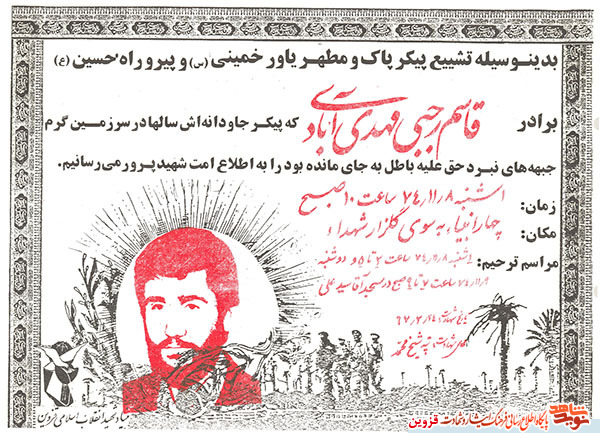 بدینوسیله تشییع پیکر پاک و مطهر یاور خمینی (س) و پیرو راه حسین (ع)
برادر قاسم رجبی مهدی آبادی که پیکر جاودانه‌اش سالها در سرزمین گرم
جبهه‌های نبرد حق علیه باطل به جای مانده بود را به اطلاع امت شهید پرور می‌رسانیم.
زمان: ۱شنبه ۷۴/۱۱/۸ ساعت ۱۰ صبح
مکان: چهارانبیاء به سوی گلزار شهداء
مراسم ترحیم: ۱شنبه ۷۴/۱۱/۸ ساعت ۲ تا ۵ و دوشنبه
۷۴/۱۱/۹ ساعت ۷ تا ۹ صبح در مسجد آقا سید علی
تاریخ شهادت: ۶۷/۲/۲۹
محل شهادت: تپه شیخ محمد
بنیاد شهید انقلاب اسلامی قزوین
نوید شاهد
پایگاه اطلاع رسانی فرهنگ ایثار و شهادت قزوین